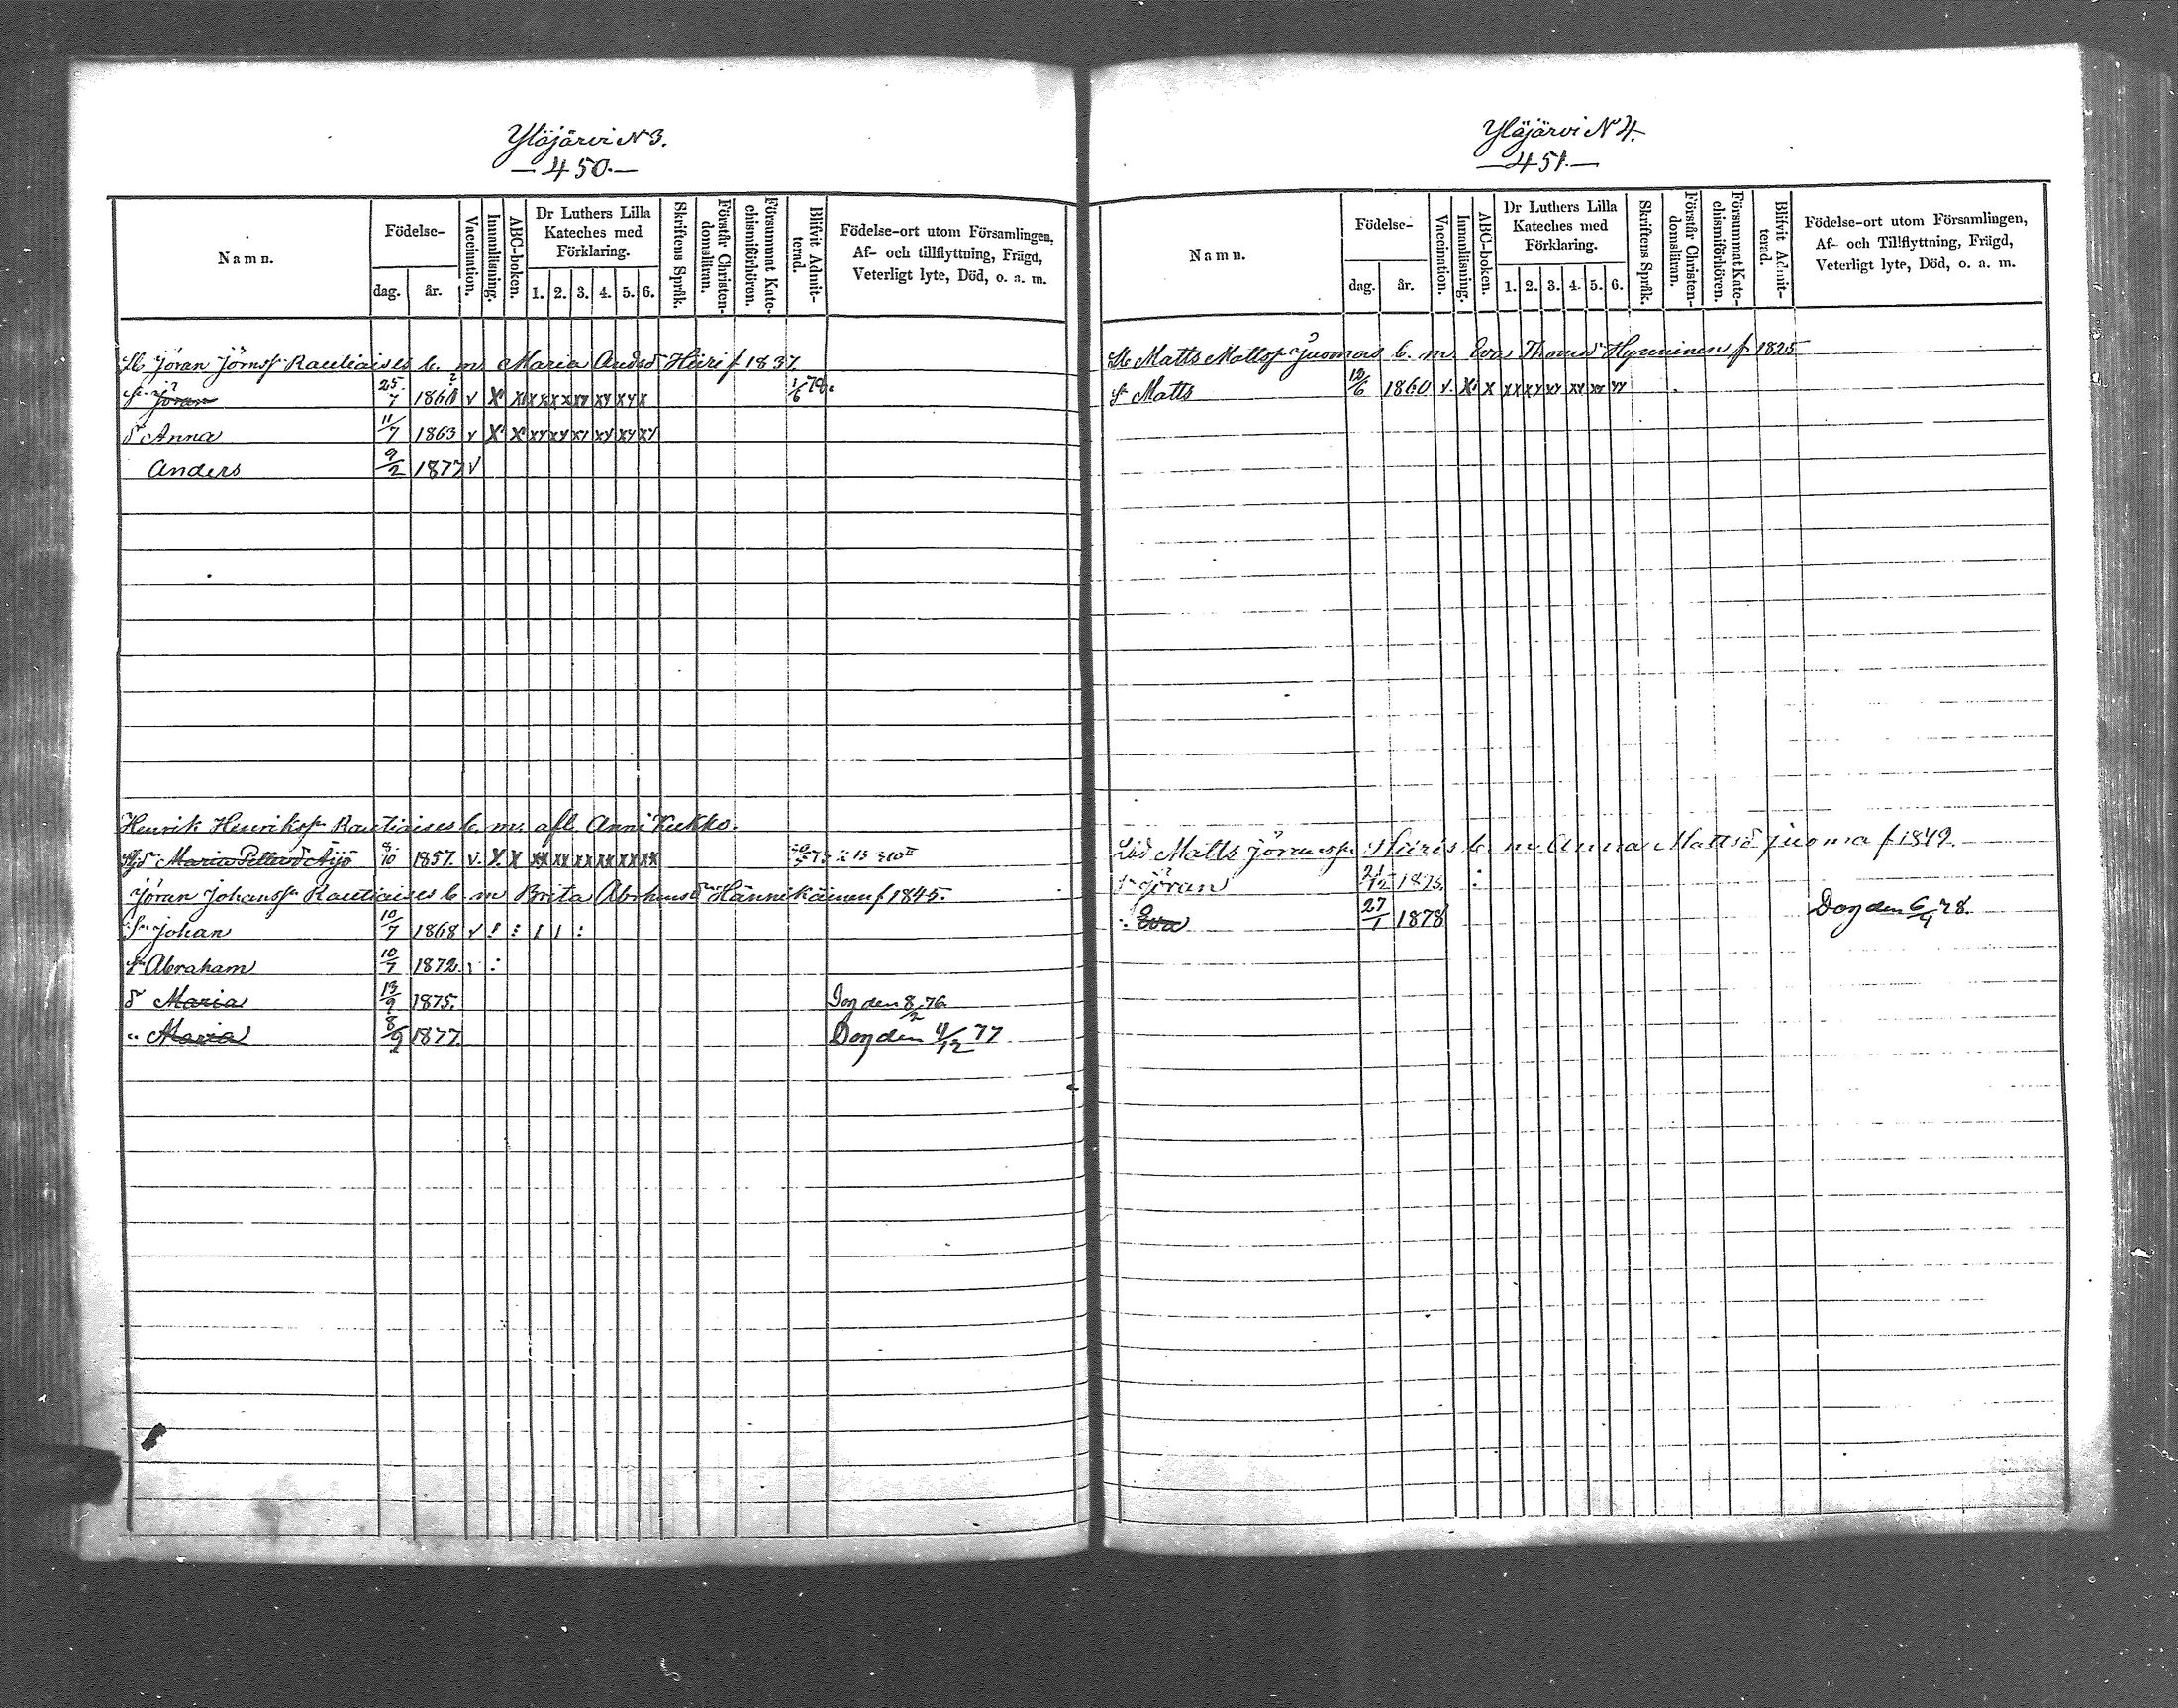 Yläjärvi N 3.
— 450. —
Namn.
Födelse-
dag.
år.
Vaccination.
Innanläsning.
ABC-boken.
Dr Luthers Lilla Kateches med Förklaring.
1. 2. 3. 4. 5. 6.
Skriftens Språk.
Förstår Christendomsläran.
Försummat Katechismiförhören.
Blifvit Admitterad.
Födelse-ort utom Församlingen,
Af- och tillflyttning, Frägd,
Veterligt lyte, Död, o. a. m.
Jöran Jörnsf Rautiaises b. m Maria Andsd Hiiri f 1837.
Sn Jöran 25/7 1860 v X X xx xx xy xy xy x 1/6 78.
dr Anna 11/7 1863 v X X xy xy xy xy xy xy
Anders 9/2 1877 v
Henrik Henriksfn Rautiaises b. m. afl. Anni Kukko.
Maria Pettersd Äijö 8/10 1857. v. X X xx xx xx xx xx xx
Jöran Johansfn Rautiaises b. m Brita Abrhmsdr Hännikäinen f 1845.
Sn Johan 10/7 1868 v : : / / :
Sn Abraham 10/7 1872. :
dr Maria 13/9 1875. Dog den 8/2 76
" Maria 8/9 1877. Dog den 4/12 77
Yläjärvi N 4.
— 451. —
Namn.
Födelse-
dag.
år.
Vaccination.
Innanläsning.
ABC-boken.
Dr Luthers Lilla Kateches med Förklaring.
1. 2. 3. 4. 5. 6.
Skriftens Språk.
Förstår Christendomsläran.
Försummat Katechismiförhören.
Blifvit Admitterad.
Födelse-ort utom Församlingen,
Af- och Tillflyttning, Frägd,
Veterligt lyte, Död, o. a. m.
Matts Mattsf Juomas b. m. Eva Thomsd Hynninen f 1825
Sn Matts 12/6 1860 v. X X xx xy xy xy xy yy
Matts Jöransfn Hiiris b. m Anna Mattsd Juoma f 1849.
Sn Jöran 21/12 1875. :
Eva 27/1 1878 Dog den 6/4 78.